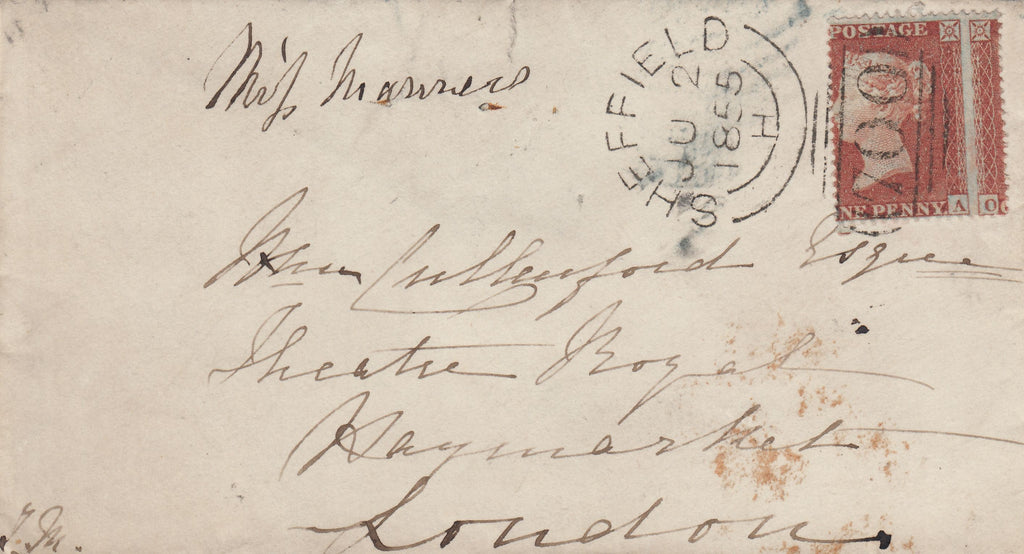 Miss Manners
SHEFFIELD
JU 2
1855
H
POSTAGE
700
NE PENNY A O
Wm Cullenford Esqre
Theatre Royal
Haymarket
London.